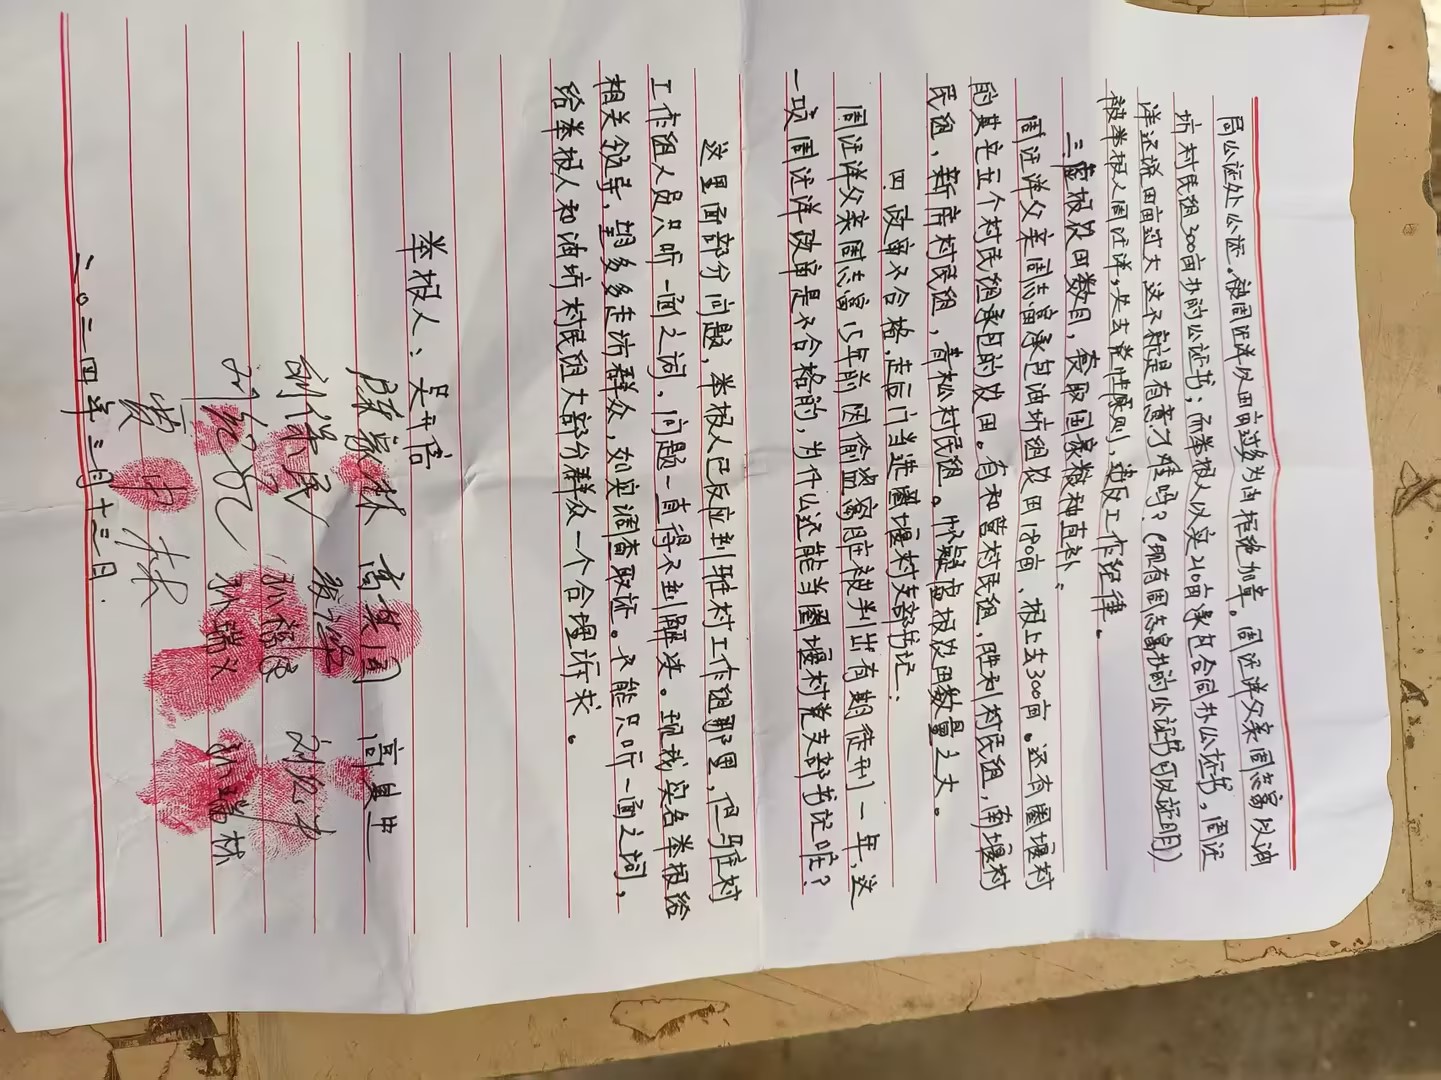 局公证处公证。被周证洋以田亩过多为由拒绝加章。周证洋父亲周志富以油
坊村民组300亩办的公证书；而举报人以实210亩承包合同办公证书，周证
洋还说田亩过大 这不就是有意刁难吗？（现有周志富办的公证书可以证明）
被举报人周证洋，失去党性原则，违反工作纪律。
三.虚报段田数目，套取国家粮种直补：
周证洋父亲周志富承包油坊组段田180亩、报上去300亩。还有圈堰村
的其它立个村民组承包的段田。有和营村民组，胜利村民组，南堰村
民组，新庄村民组，青松村民组。 虚报段田数量之大。
四.政审不合格，走后门当选圈堰村支部书记：
周证洋父亲周志富15年前因偷盗窝脏被判出有期徒刑一年，这
一项周证洋政审是不合格的，为什么还能当圈堰村党支部书记呢？
这里面部分问题，举报人已反应到驻村工作组那里，但驻村
工作组人员只听一面之词，问题一直得不到解决。现我实名举报给
相关领导，望多多走访群众，如实调查取证。不能只听一面之词，
给举报人和油坊村民组大部分群众一个合理诉求。
举报人：吴开信
陈家林 高其周 高其中
刘保成
孙福良
孙瑞义 孙瑞林
二〇二四年三月十三日.